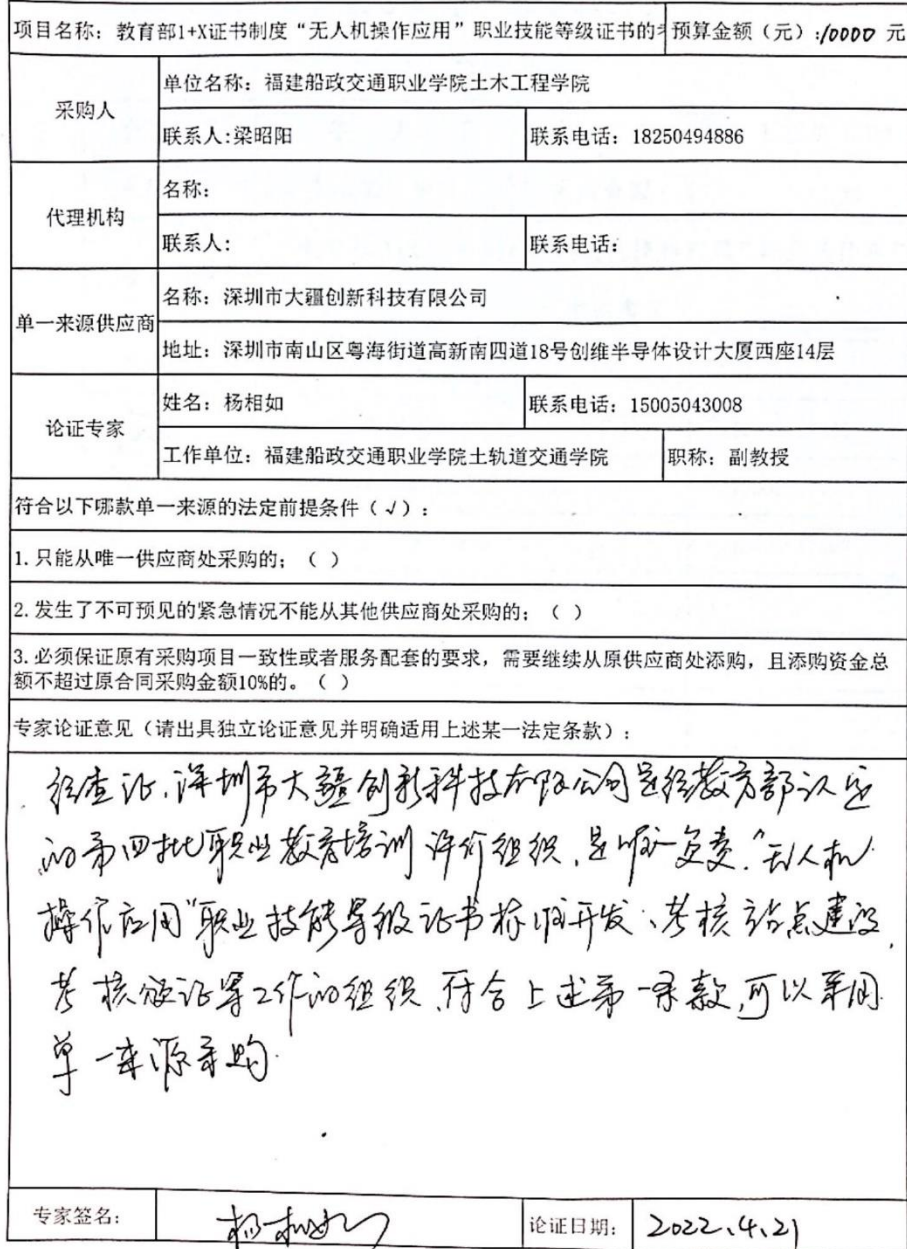 项目名称：教育部1+X证书制度“无人机操作应用”职业技能等级证书的 预算金额（元）:10000 元
采购人 单位名称：福建船政交通职业学院土木工程学院
联系人:梁昭阳 联系电话：18250494886
代理机构 名称：
联系人： 联系电话：
单一来源供应商 名称：深圳市大疆创新科技有限公司
地址：深圳市南山区粤海街道高新南四道18号创维半导体设计大厦西座14层
论证专家 姓名：杨相如 联系电话：15005043008
工作单位：福建船政交通职业学院土轨道交通学院 职称：副教授
符合以下哪款单一来源的法定前提条件（√）：
1.只能从唯一供应商处采购的；（ ）
2.发生了不可预见的紧急情况不能从其他供应商处采购的；（ ）
3.必须保证原有采购项目一致性或者服务配套的要求，需要继续从原供应商处添购，且添购资金总
额不超过原合同采购金额10%的。（ ）
专家论证意见（请出具独立论证意见并明确适用上述某一法定条款）：
经查证，深圳市大疆创新科技有限公司是经教育部认定
的第四批职业教育培训评价组织，是唯一负责“无人机
操作应用”职业技能等级证书标准开发、考核站点建设，
考核颁证等工作的组织，符合上述第一条款，可以采用
单一来源采购.
专家签名： 杨相如 论证日期： 2022.4.21